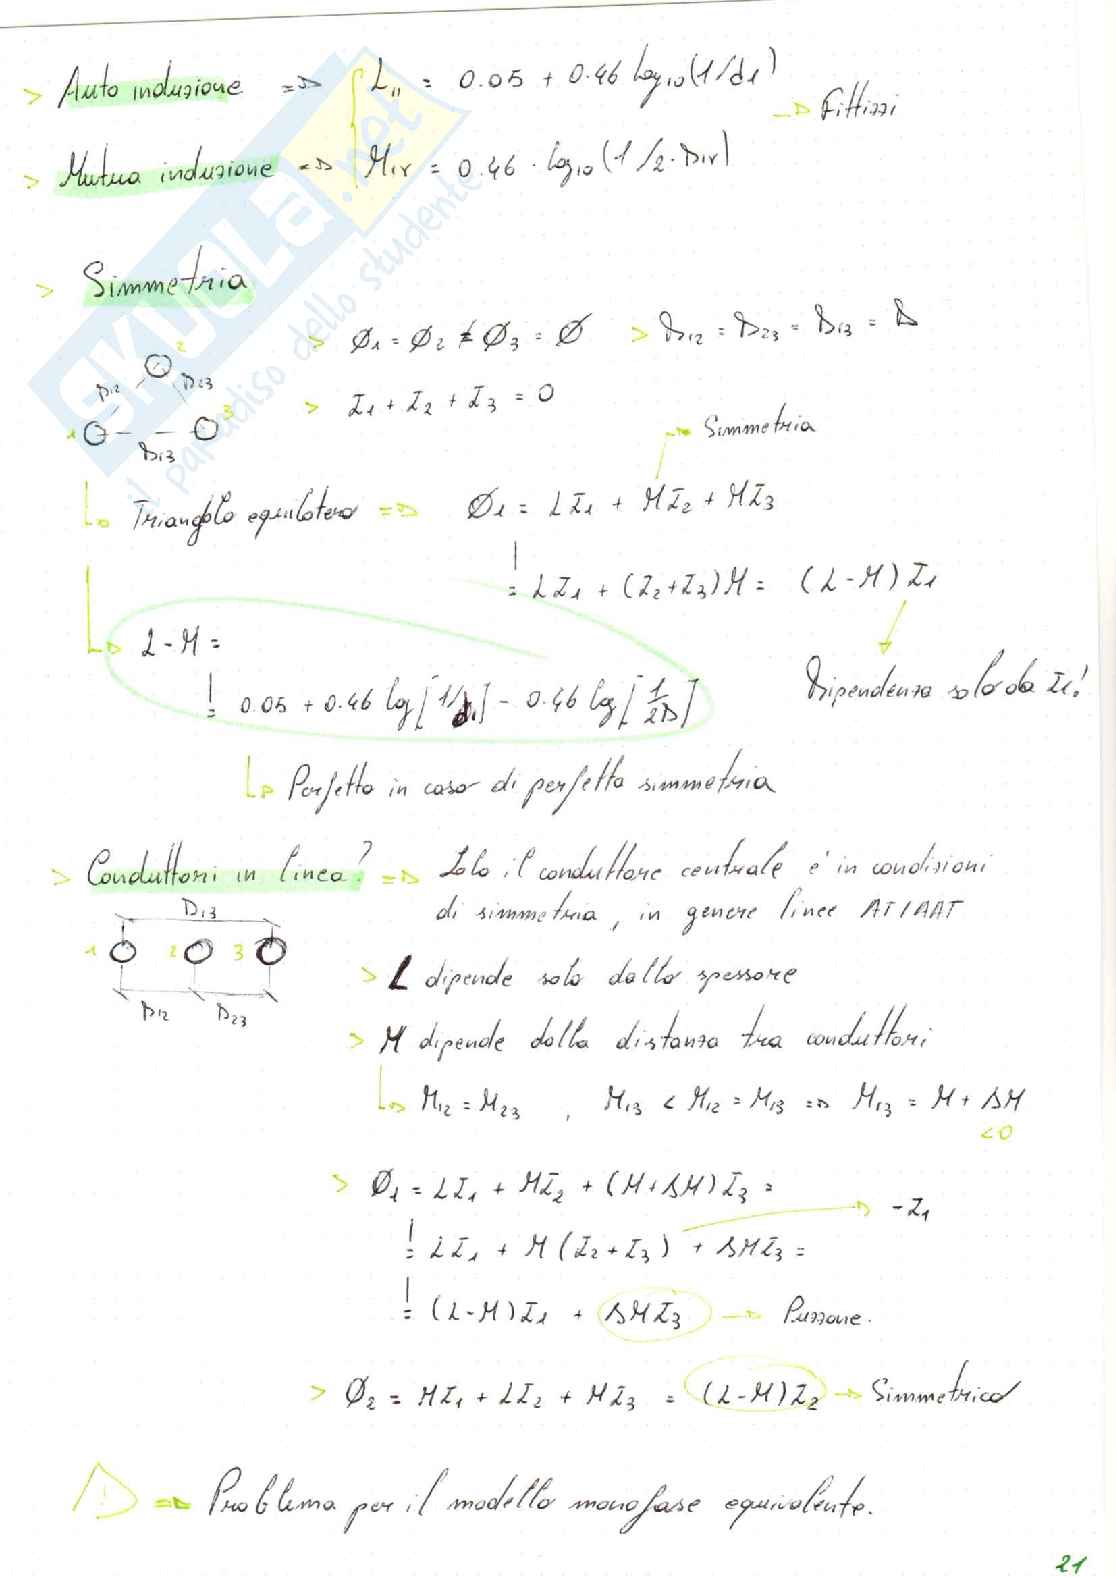 > Auto induzione => L11 = 0.05 + 0.46 log10(1/d1)
-> Fittizzi
> Mutua induzione => M1r = 0.46 · log10(1/2·D1r)
SKUOLA.net
il paradiso dello studente
> Simmetria
> Ø1 = Ø2 ≠ Ø3 = Ø > D12 = D23 = D13 = D
2
D12 D23
> I1 + I2 + I3 = 0
1 3
D13
-> Simmetria
Triangolo equilatero => Ø1 = LI1 + MI2 + MI3
= LI1 + (I2+I3)M = (L-M) I1
L-M =
Dipendenza solo da I1!
= 0.05 + 0.46 log[1/d1] - 0.46 log[1/2D]
Perfetto in caso di perfetta simmetria
> Conduttori in linea? => Solo il conduttore centrale e' in condizioni
di simmetria, in genere linee AT/AAT
D13
1 2 3
D12 D23
> L dipende solo dallo spessore
> M dipende dalla distanza tra conduttori
M12 = M23 , M13 < M12 = M13 => M13 = M + ΔM
<0
> Ø1 = LI1 + MI2 + (M+ΔM)I3 =
-> -I1
= LI1 + M(I2+I3) + ΔMI3 =
= (L-M)I1 + ΔMI3 -> Puzzone.
> Ø2 = MI1 + LI2 + MI3 = (L-M)I2 -> Simmetrico
! => Problema per il modello monofase equivalente.
21